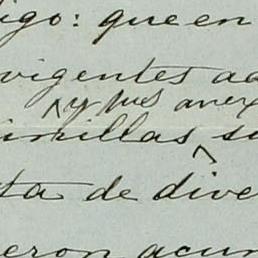 igo: que en
vigentes aa
y sus anex
imillas su
ta de dive
eron acum